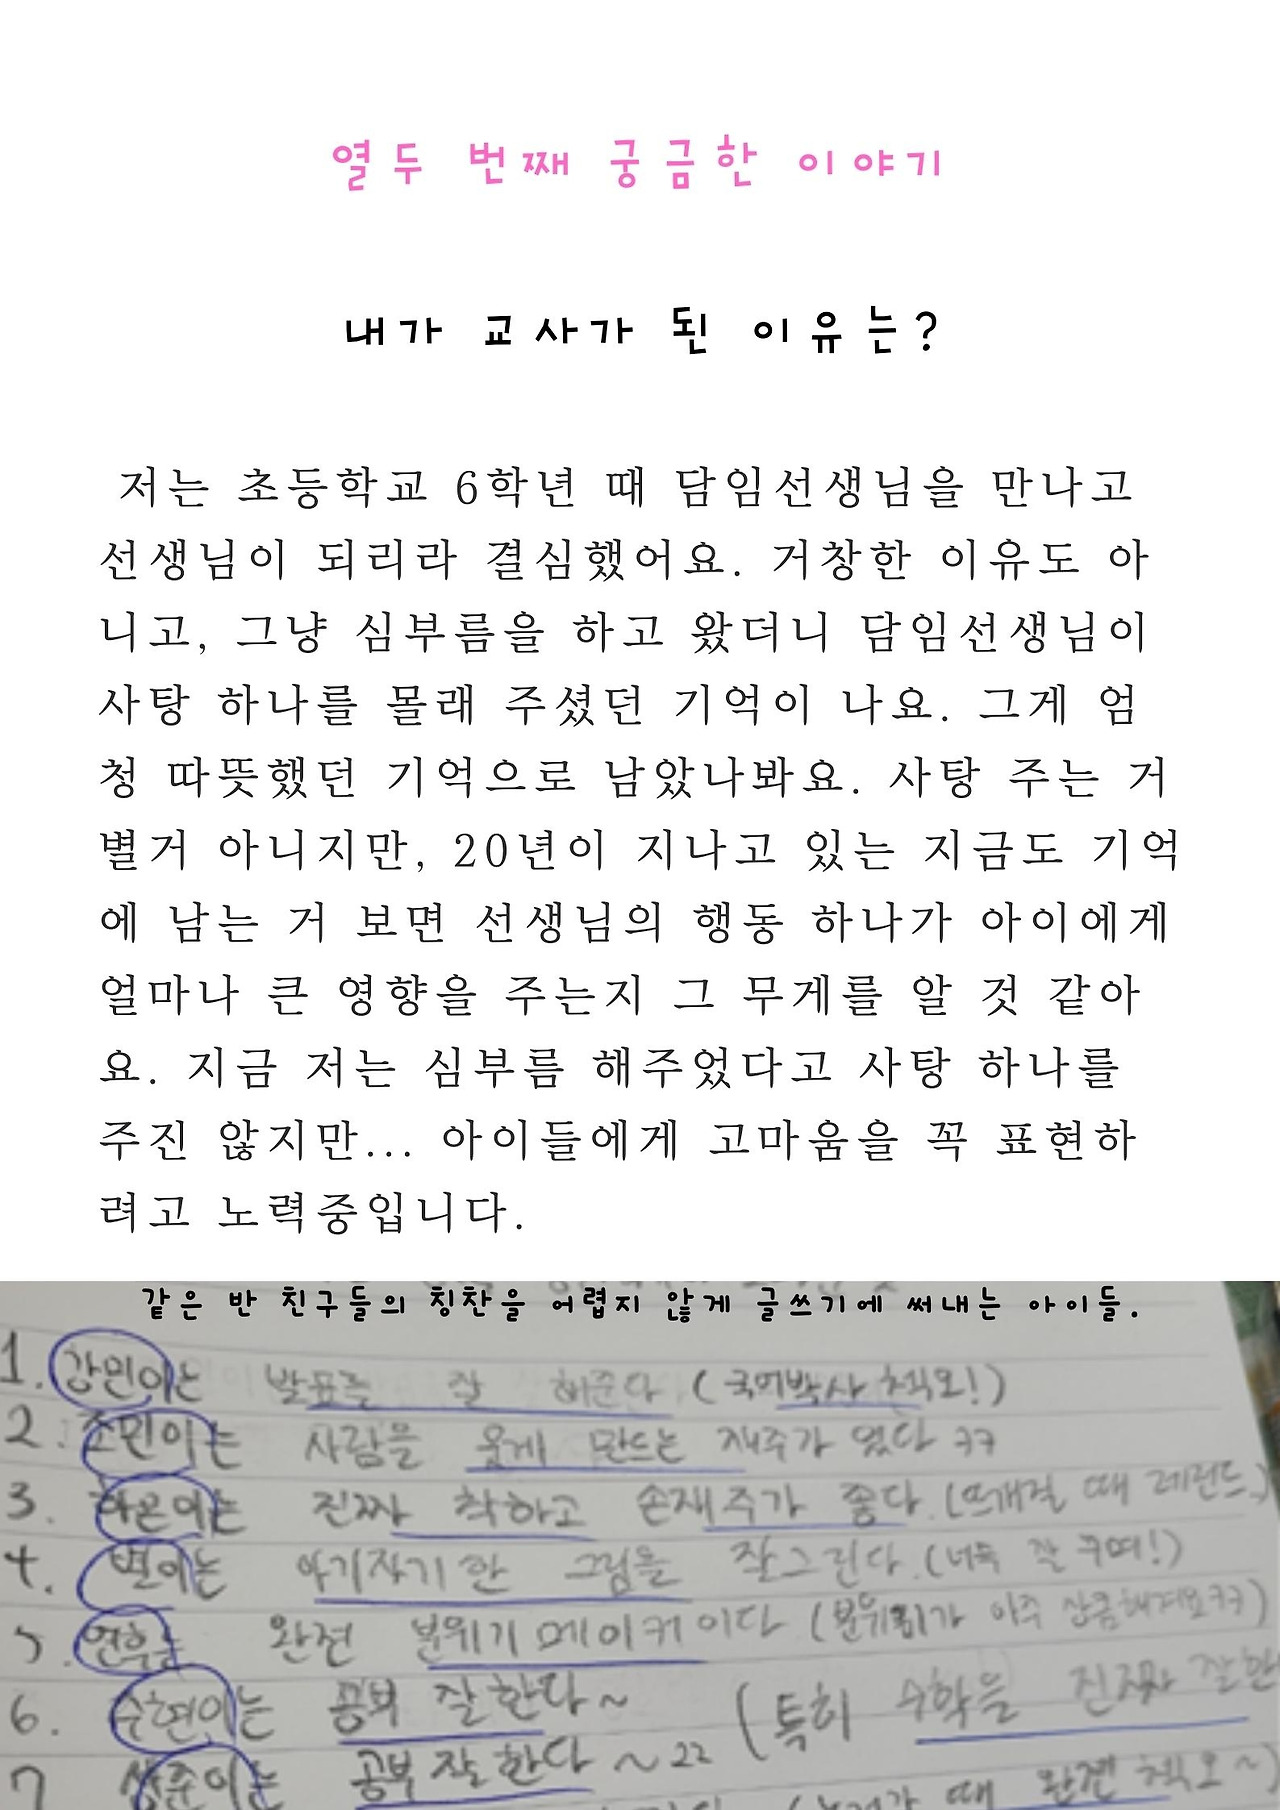 열두 번째 궁금한 이야기
내가 교사가 된 이유는?
저는 초등학교 6학년 때 담임선생님을 만나고
선생님이 되리라 결심했어요. 거창한 이유도 아
니고, 그냥 심부름을 하고 왔더니 담임선생님이
사탕 하나를 몰래 주셨던 기억이 나요. 그게 엄
청 따뜻했던 기억으로 남았나봐요. 사탕 주는 거
별거 아니지만, 20년이 지나고 있는 지금도 기억
에 남는 거 보면 선생님의 행동 하나가 아이에게
얼마나 큰 영향을 주는지 그 무게를 알 것 같아
요. 지금 저는 심부름 해주었다고 사탕 하나를
주진 않지만... 아이들에게 고마움을 꼭 표현하
려고 노력중입니다.
같은 반 친구들의 칭찬을 어렵지 않게 글쓰기에 써내는 아이들.
1. 강민이는 발표를 잘 해준다 (국어박사 최고!)
2. 조민이는 사람을 웃게 만드는 재주가 있다 ㅋㅋ
3. 하은이는 진짜 착하고 손재주가 좋다. (뜨개질 때 레전드)
4. 별이는 아기자기한 그림을 잘그린다. (너무 잘
5. 연후는 완전 분위기 메이커이다 (분위기가 아주 상큼해져요ㅋㅋ)
6. 수현이는 공부 잘한다~ (특히 수학을 진짜 잘한
7 공부 잘한다 ~22
때 완전 최고~)